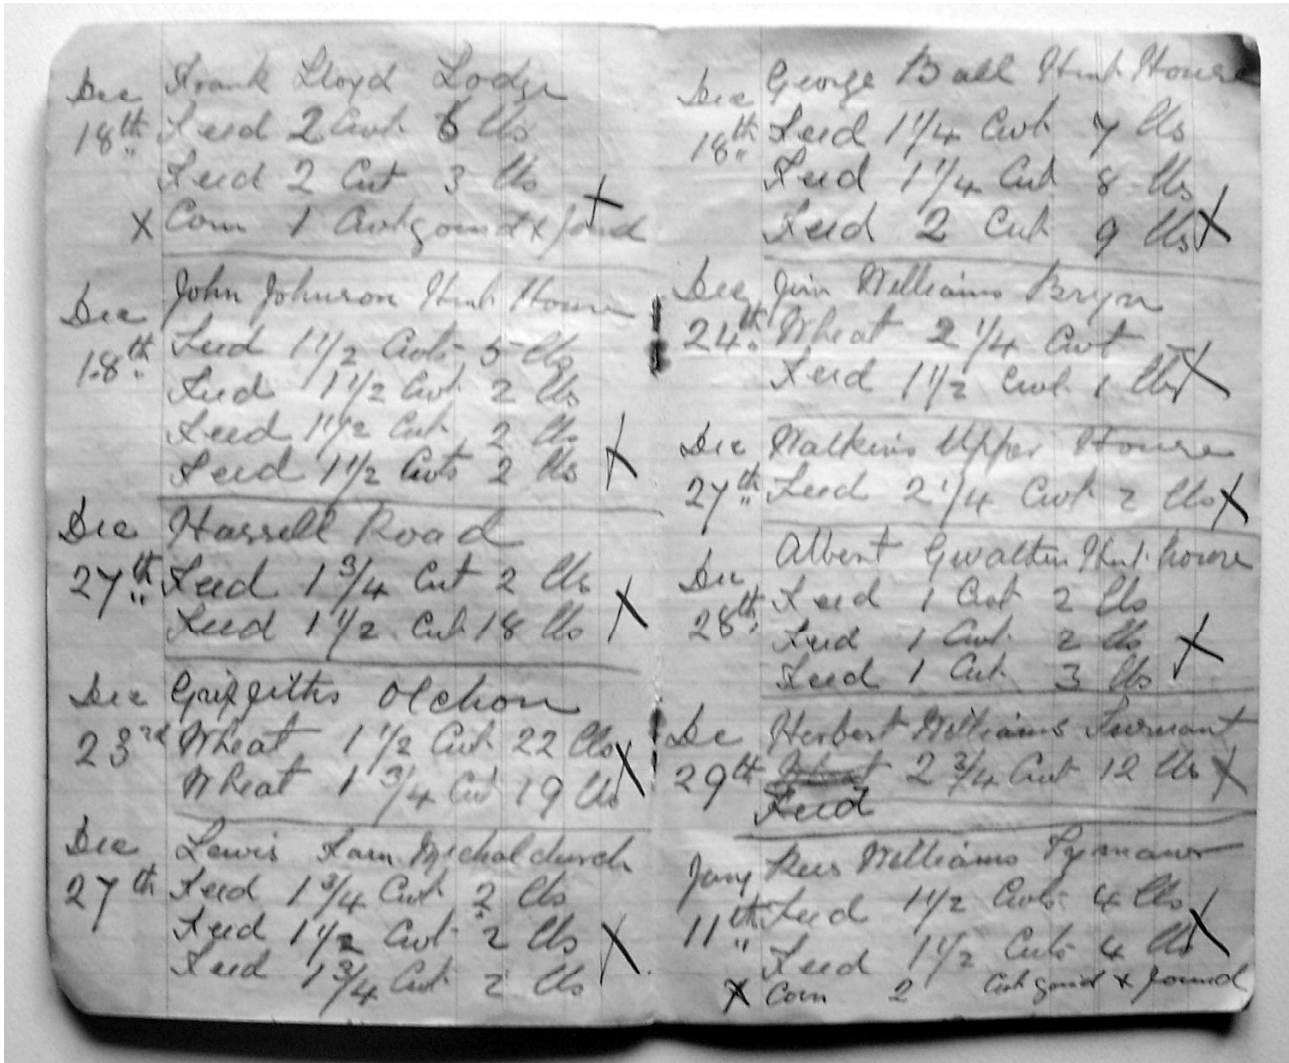 Dec Frank Lloyd Lodge
18th Feed 2 Cwt 6 lbs
Feed 2 Cwt 3 lbs X
X Corn 1 Cwt & found
Dec John Johnson Hunt House
18th Feed 1 1/2 Cwts 5 lbs
Feed 1 1/2 Cwt 2 lbs
Feed 1 1/2 Cwt 2 lbs
Feed 1 1/2 Cwts 2 lbs X
Dec Hassell Road
27th Feed 1 3/4 Cwt 2 lbs
Feed 1 1/2 Cwt 18 lbs X
Dec Griffiths Olchon
23rd Wheat 1 1/2 Cwt 22 lbs X
Wheat 1 3/4 Cwt 19 lbs
Dec Lewis Farm Michaelchurch
27th Feed 1 3/4 Cwt 2 lbs
Feed 1 1/2 Cwt 2 lbs X
Feed 1 3/4 Cwt 2 lbs
Dec George Ball Hunt House
18th Feed 1 1/4 Cwt 7 lbs
Feed 1 1/4 Cwt 8 lbs
Feed 2 Cwt 9 lbs X
Dec Jim Williams Bryn
24th Wheat 2 1/4 Cwt
Feed 1 1/2 Cwt 1 lbs X
Dec Watkins Upper House
27th Feed 2 1/4 Cwt 2 lbs X
Dec Albert Hunt house
28th Feed 1 Cwt 2 lbs
Feed 1 Cwt 2 lbs X
Feed 1 Cwt 3 lbs
Dec Herbert Williams
29th 2 3/4 Cwt 12 lbs X
Feed
Jany Rees Williams
11th Feed 1 1/2 Cwts 4 lbs X
Feed 1 1/2 Cwts 4 lbs
X Corn 2 Cwt & found